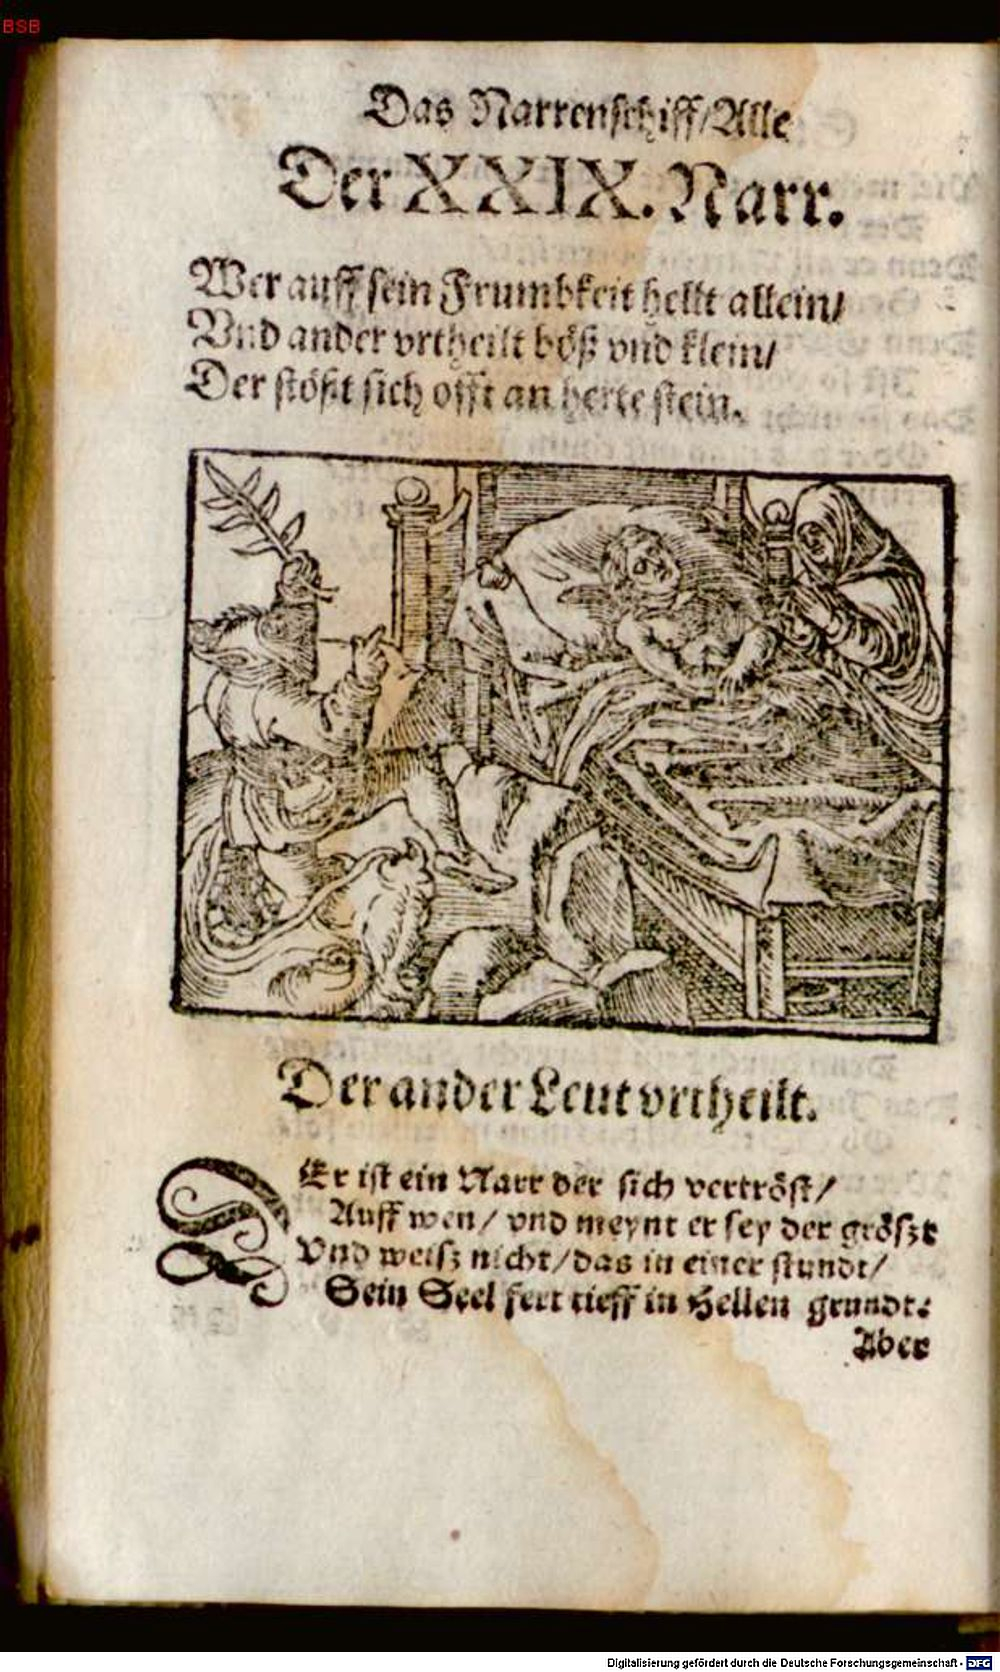 BSB
Das Narrenschiff/Alle
Der XXIX. Narr.
Wer auff sein Frumbkeit hellt allein/
Vnd ander vrtheilt böß vnd klein/
Der stößt sich offt an herte stein.
Der ander Leut vrtheilt.
Er ist ein Narr der sich vertröst/
Auff wen/ vnd meynt er sey der gröszt
Vnd weisz nicht/das in einer stundt/
Sein Seel fert tieff in Hellen grundt:
Aber
Digitalisierung gefördert durch die Deutsche Forschungsgemeinschaft - DFG